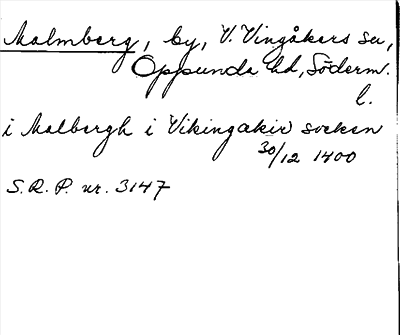 Malmberg, by, V. Vingåkers sn,
Oppunda hd, Söderm.
l.
i Malbergh i Vikingakir socken
30/12 1400
S.R.P. nr. 3147